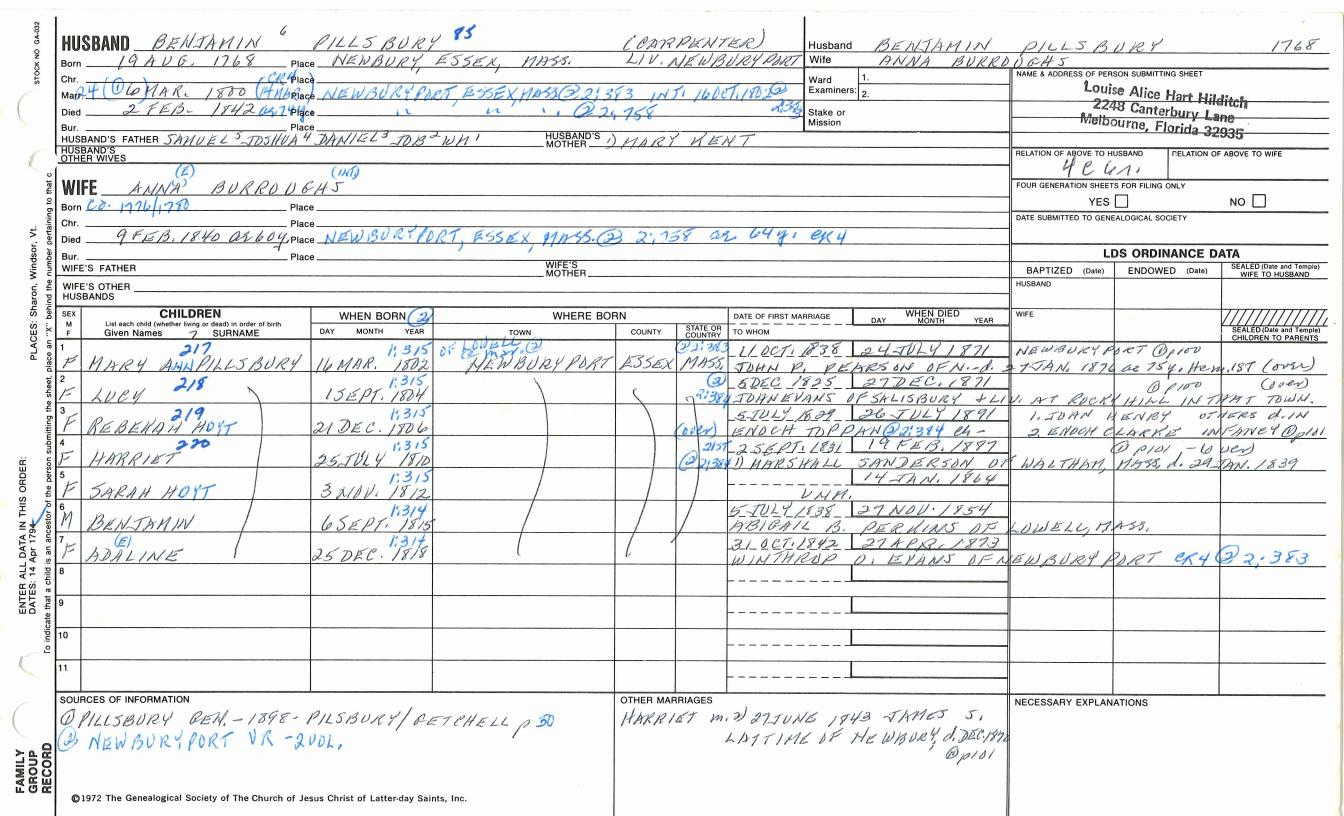 STOCK NO. GA-032
HUSBAND BENJAMIN 6 PILLSBURY 95 (CARPENTER)
Born 19 AUG. 1768 Place NEWBURY, ESSEX, MASS. LIV. NEWBURYPORT
Chr. Place
Marr. 24 (① 6) MAR. 1800 Place NEWBURYPORT, ESSEX, MASS ② 2:383 INT: 16 OCT.
Died 2 FEB. 1842 Place " " " ② 2:758
Bur. Place
HUSBAND'S FATHER SAMUEL 5 JOSHUA 4 DANIEL 3 JOB 2 WM 1 HUSBAND'S MOTHER 1) MARY KENT
HUSBAND'S OTHER WIVES
(E) (INT)
WIFE ANNA BURROUGHS
Born CA. 1776/1780 Place
Chr. Place
Died 9 FEB. 1840 ae 60y. Place NEWBURYPORT, ESSEX, MASS. ② 2:758 ae 64y. CR4
Bur. Place
WIFE'S FATHER WIFE'S MOTHER
WIFE'S OTHER HUSBANDS
Husband BENJAMIN PILLSBURY 1768
Wife ANNA BURROUGHS
Ward Examiners: 1. 2.
Stake or Mission
NAME & ADDRESS OF PERSON SUBMITTING SHEET
Louise Alice Hart Hilditch
2248 Canterbury Lane
Melbourne, Florida 32935
RELATION OF ABOVE TO HUSBAND RELATION OF ABOVE TO WIFE
FOUR GENERATION SHEETS FOR FILING ONLY
YES NO
DATE SUBMITTED TO GENEALOGICAL SOCIETY
LDS ORDINANCE DATA
BAPTIZED (Date) ENDOWED (Date) SEALED (Date and Temple) WIFE TO HUSBAND
HUSBAND
WIFE
SEALED (Date and Temple) CHILDREN TO PARENTS
SEX M F CHILDREN WHEN BORN ② WHERE BORN DATE OF FIRST MARRIAGE WHEN DIED
List each child (whether living or dead) in order of birth
Given Names 7 SURNAME DAY MONTH YEAR TOWN COUNTY STATE OR COUNTRY TO WHOM DAY MONTH YEAR
1 217 1:315 OF LOWELL ② 2:383 11 OCT. 1838 24 JULY 1871 NEWBURYPORT ① p100
F MARY ANN PILLSBURY 16 MAR. 1802 NEWBURYPORT ESSEX MASS. JOHN P. PEARSON OF N. - d. 27 JAN. 1876 ae 75y. Hem. 1ST (over)
2 218 1:315 ② 2:384 5 DEC. 1825 27 DEC. 1871 ① p100 (over)
F LUCY 1 SEPT. 1804 JOHN EVANS OF SALISBURY + LIV. AT ROCKY HILL IN THAT TOWN.
3 219 1:315 5 JULY 1829 26 JULY 1891 1. JOHN HENRY OTHERS d. IN
F REBEKAH HOYT 21 DEC. 1806 (over) ENOCH TOPPAN ② 2:384 ch- 2. ENOCH CLARKE INFANCY ① p101
4 220 1:315 21ST 2 SEPT. 1831 19 FEB. 1897 ① p101 - (over)
F HARRIET 25 JULY 1810 ② 2:384 1) MARSHALL SANDERSON OF WALTHAM, MASS. d. 29 JAN. 1839
5 1:315 14 JAN. 1864
F SARAH HOYT 3 NOV. 1812 UNM.
6 1:314 5 JULY 1838 27 NOV. 1854
M BENJAMIN 6 SEPT. 1815 ABIGAIL B. PERKINS OF LOWELL, MASS.
7 (E) 1:314 31 OCT. 1842 27 APR. 1873
F ADALINE 25 DEC. 1818 WINTHROP O. EVANS OF NEWBURYPORT CR4 ② 2:383
8
9
10
11
SOURCES OF INFORMATION
① PILLSBURY GEN. - 1898 - PILSBURY/GETCHELL p 50
② NEWBURYPORT VR - 2 VOL.
OTHER MARRIAGES
HARRIET m. 2) 27 JUNE 1843 JAMES S.
LATTIME OF NEWBURY, d. DEC.
① p101
NECESSARY EXPLANATIONS
©1972 The Genealogical Society of The Church of Jesus Christ of Latter-day Saints, Inc.
FAMILY GROUP RECORD
ENTER ALL DATA IN THIS ORDER:
DATES: 14 Apr 1794
PLACES: Sharon, Windsor, Vt.
To indicate that a child is an ancestor of the person submitting the sheet, place an "X" behind the number pertaining to that c